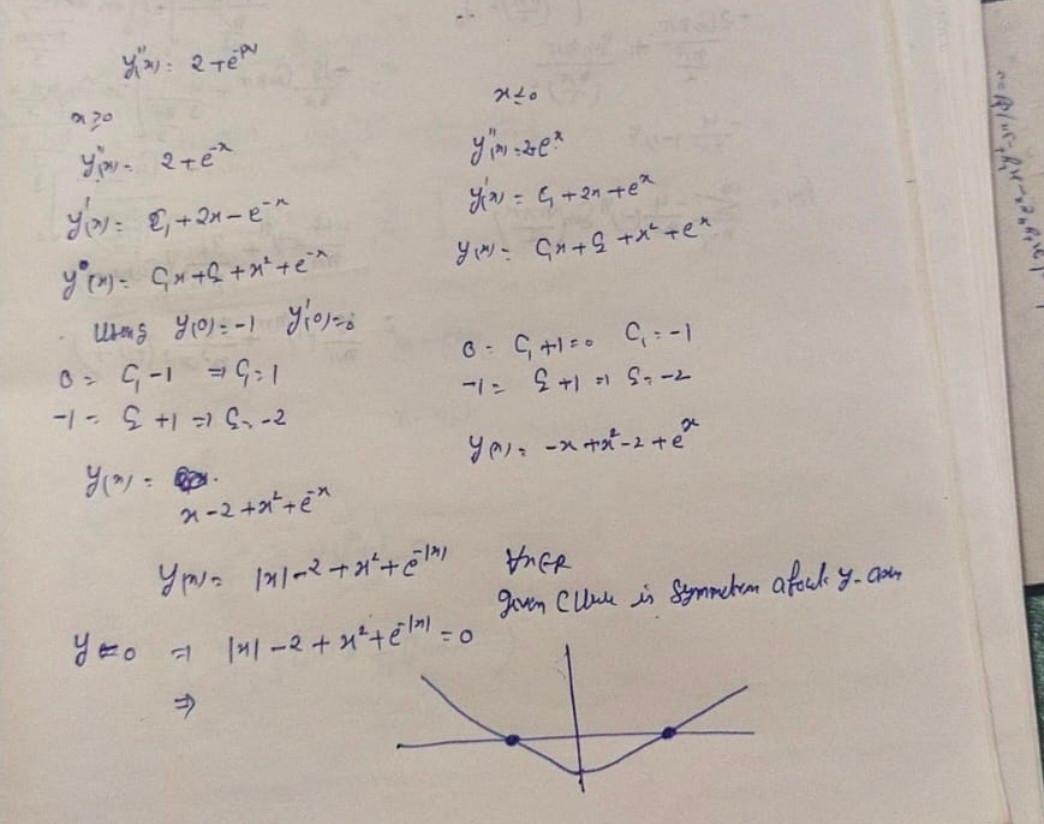 y''(x) = 2 + e^{-|x|}
x ≥ 0
y''(x) = 2 + e^{-x}
y'(x) = C₁ + 2x - e^{-x}
y(x) = C₁x + C₂ + x² + e^{-x}
Using y(0) = -1 y'(0) = 0
0 = C₁ - 1 ⇒ C₁ = 1
-1 = C₂ + 1 ⇒ C₂ = -2
y(x) =
x - 2 + x² + e^{-x}
x ≤ 0
y''(x) = 2+e^{x}
y'(x) = C₁ + 2x + e^{x}
y(x) = C₁x + C₂ + x² + e^{x}
0 = C₁ + 1 = 0 C₁ = -1
-1 = C₂ + 1 ⇒ C₂ = -2
y(x) = -x + x² - 2 + e^{x}
y(x) = |x| - 2 + x² + e^{-|x|} ∀x∈R
given Curve is Symmetric about y-axis
y = 0 ⇒ |x| - 2 + x² + e^{-|x|} = 0
⇒